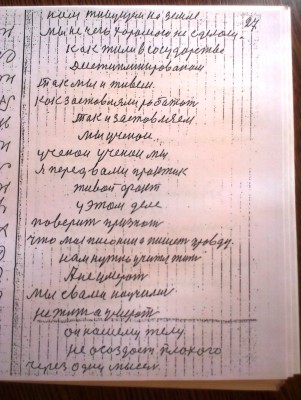 ними живущии на земле
27
мы не чего хорошого не сделом.
как жили в государстве
так мы и живем.
как заставляли работат
так и заставляем
мы ученом.
ученом ученом мы
я перед вами практик
живой факт
у этом деле
поверит признат
что мы писонио пишет правду.
нам нужно учится жит
А не умират
мы с вами научили
не жит а умират
он нашему телу
не создаст плохого
через одну мысел.